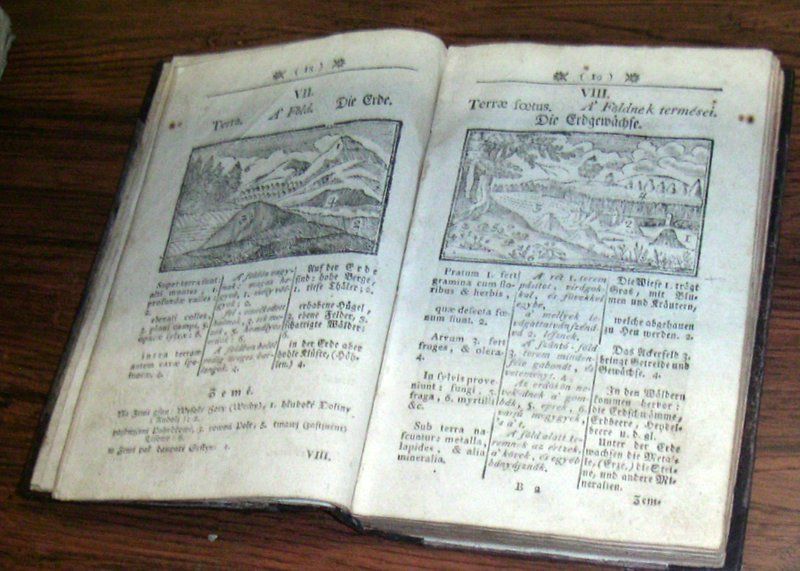 ( 18 )
VII.
Terra. A' Föld. Die Erde.
Super terra sunt
alti montes, 1.
profundæ valles
2.
elevati colles,
3. plani campi, 5.
intra terram
autem cavæ spe-
A' földön nagy-
magas he-
gyek, 1. mély völ-
A' földben belöl
pedig üreges bar-
langok. 4.
Auf der Erde
sind: hohe Berge,
1. tiefe Thäler; 2.
erhobene Hügel,
3. ebene Felder, 5.
schattigte Wälder:
in der Erde aber
hohle Klüfte, (Höh-
len.) 4.
Zemé.
Na Zemi gsau Wysoké Hory (Wrchy), 1. hluboké Doliny
3. rowná Pole, 5.
w Zemi pak
VIII.
( 19 )
VIII.
Terræ fœtus. A' Földnek termései.
Die Erdgewächse.
Pratum 1. fert
gramina cum flo-
ribus & herbis,
quæ desecta fœ-
num fiunt. 2.
Arvum 3. fert
fruges, & olera.
4.
In silvis prove-
niunt: fungi,
fraga, 6. myrtilli
&c.
Sub terra na-
scuntur: metalla,
lapides, & alia
mineralia.
A' rét 1. terem
pásitot, virágok-
kal, és füvekkel
egybe,
a' mellyek le-
vágattatván szénává
2. lesznek.
A' szántó föld
3. terem minden-
féle gabonát, és
veteményt. 4.
Az erdőkön ne-
vekednek a' gom-
bák, 5. eper, 6.
A' föld alatt te-
remnek az értzek,
a' kövek, és egyéb
bányásznák.
Die Wiese 1. trägt
Gras, mit Blu-
men und Kräutern,
welche abgehauen
zu Heu werden. 2.
Das Ackerfeld 3.
bringt Getreide und
Gewächse. 4.
In den Wäldern
kommen hervor:
die Erdschwämme,
Erdbeere, Heydel-
beere u. d. gl.
Unter der Erde
wachsen die Meta-
lle, (Erze,) die Stei-
ne, und andere Mi-
neralien.
B 2
Zem-